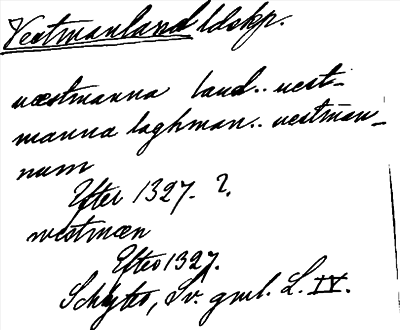 Vestmanland ldskp.
væstmanna land.. uest-
manna laghman.. uestman-
num
Efter 1327. ?.
westmæn
Efter 1327.
Schlyter, Sv. gml. L. IV.